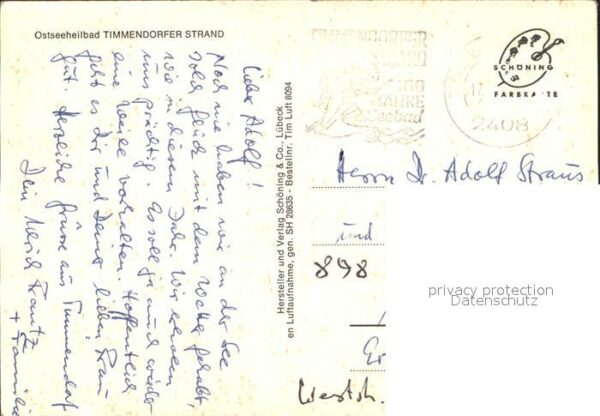 Ostseeheilbad TIMMENDORFER STRAND
Lieber Adolf!
Noch nie haben wir an der See
solch Glück mit dem Wetter gehabt,
wie in diesem Jahr. Wir erholen
uns prächtig. Es soll ja auch wieder
eine Weile vorhalten. Hoffentlich
geht es Dir und Deiner lieben Frau
gut. Herzliche Grüße aus Timmendorf
Dein
+ Familie
Hersteller und Verlag Schöning & Co., Lübeck
en Luftaufnahme, gen. SH 28635 - Bestellnr. Tim Luft 8094
TIMMENDORFER
STRAND
JAHRE
Seebad
17
2408
SCHÖNING
FARBKARTE
Herrn Dr. Adolf Straus
und
898
Er
Westph.
privacy protection
Datenschutz